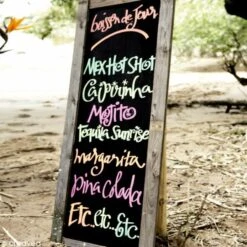 boisson de Jour
Mex Hot Shot
Caipirinha
Mojito
Tequila Sunrise
margarita
Pina Colada
Etc..etc..Etc.